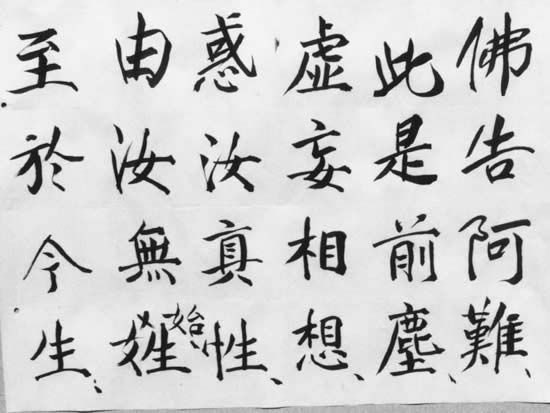 佛告阿難、
此是前塵、
虚妄相想、
惑汝真性、
由汝無始
至於今生、